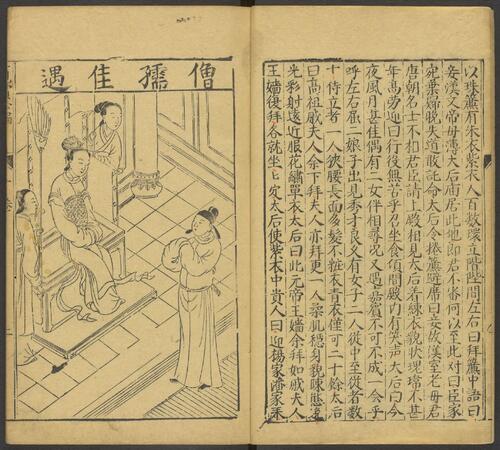 以珠簾有朱衣紫衣人百數環立階陛間左右曰拜簾中語曰
妾漢文帝母薄太后庙居此他郎君不審何以至此對曰臣家
宛葉將歸失道敢託命太后令捲簾避席曰妾故漢室老母君
唐朝名士不相君臣請上殿相見太后着練衣貌狀瑰瑋不甚
年高勞迎曰行役無苦乎召坐食頃間殿內有笑聲太后曰今
夜風月甚佳偶有二女伴相尋況又遇嘉賓不可不成一會乎
呼左右屈二娘子出見秀才良久有女子二人從中至從者數
十侍立者一人狹腰長面多髮不粧衣青衣僅可二十餘太后
曰高祖戚夫人余下拜夫人亦拜更一人柔肌穩身貌陳態逸
光彩射遠近服花繡單衣太后曰此元帝王嬙余拜如戚夫人
王嬙復拜各就坐坐定太后使紫衣中貴人曰迎楊家潘家來
僧孺佳遇